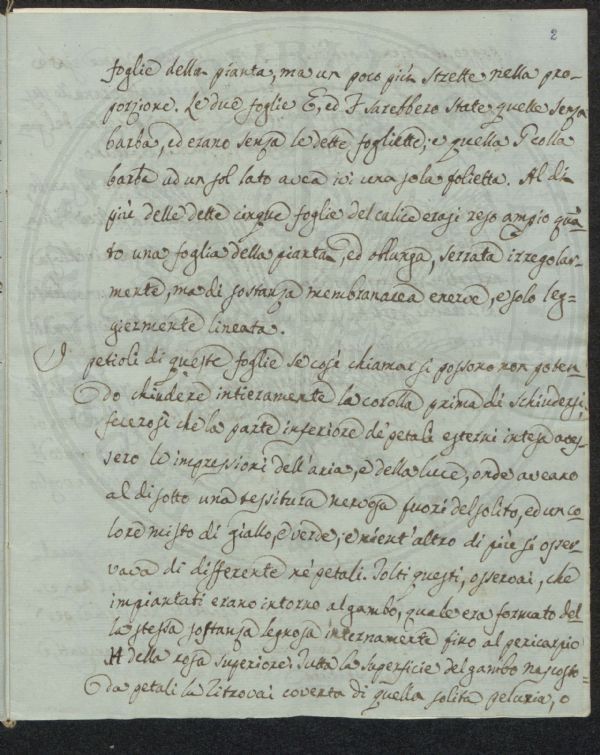 2
foglie della pianta, ma un poco più strette nella pro=
porzione. Le due foglie E, ed F sarebbero state quelle senza
barba, ed erano senza le dette fogliette; e quella colla
barba ad un sol lato avea ivi una sola folietta. Al di
più delle dette cinque foglie del calice erasi reso ampio quā
to una foglia della pianta, ed oblunga, serrata irregolar=
mente, ma di sostanza membranacea enerve, e solo leg=
giermente lineata.
I petioli di queste foglie se così chiamar si possono non poten=
do chiudere intieramente la corolla prima di schiudersi,
fecerosi che la parte inferiore de' petali esterni intesa aves=
sero le impressioni dell'aria, e della luce, onde aveano
al di sotto una tessitura nervosa fuori del solito, ed un co=
lore misto di giallo, e verde; e nient'altro di più si osser=
vava di differente ne' petali. Tolti questi, osservai, che
impiantati erano intorno al gambo, quale era formato del
la stessa sostanza legnosa internamente fino al pericarpio
H della rosa superiore. Tutta la superficie del gambo nascosto=
da petali la ritrovai coverta di quella solita peluria, o